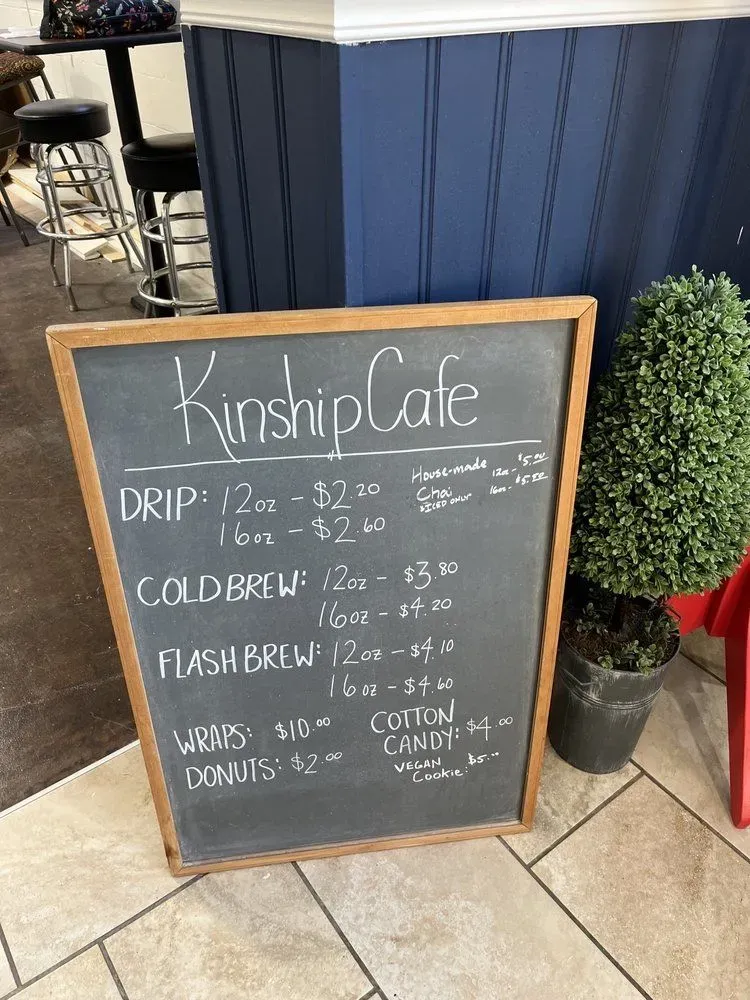 Kinship Cafe
DRIP: 12oz - $2.20
16oz - $2.60
House-made 12oz - $5.00
Chai 16oz - $5.50
*ICED ONLY*
COLD BREW: 12oz - $3.80
16oz - $4.20
FLASH BREW: 12oz - $4.10
16oz - $4.60
WRAPS: $10.00
DONUTS: $2.00
COTTON
CANDY: $4.00
VEGAN
Cookie: $5.00